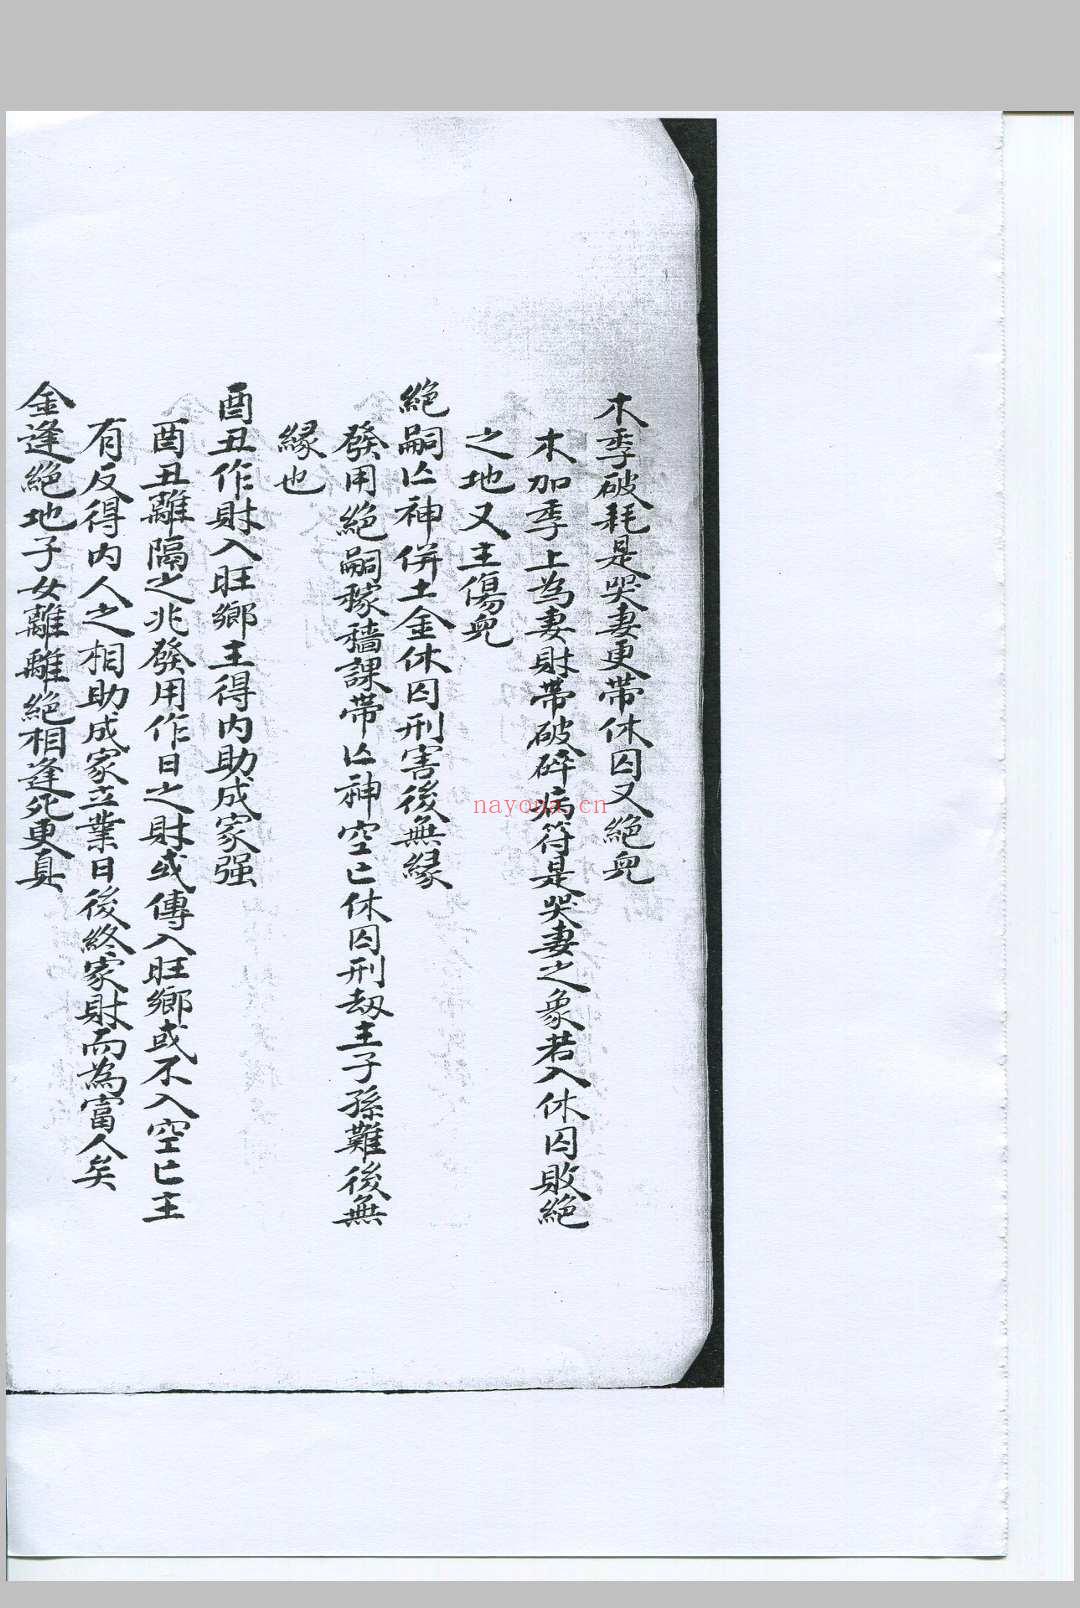 木季破耗是哭妻更帶休囚又絕兒
木加季上為妻財帶破碎病符是哭妻之象若入休囚敗絕
之地又主傷兒
絕嗣亡神併土金休囚刑害後無緣
發用絕嗣稼穡課帶亡神空亡休囚刑劫主子孫難後無
緣也
酉丑作財入旺鄉主得內助成家强
酉丑離隔之兆發用作日之財或傳入旺鄉或不入空亡主
有反得內人之相助成家立業日後終家財而為富人矣
金逢絕地子女離離絕相逢死更真
nayona.cn